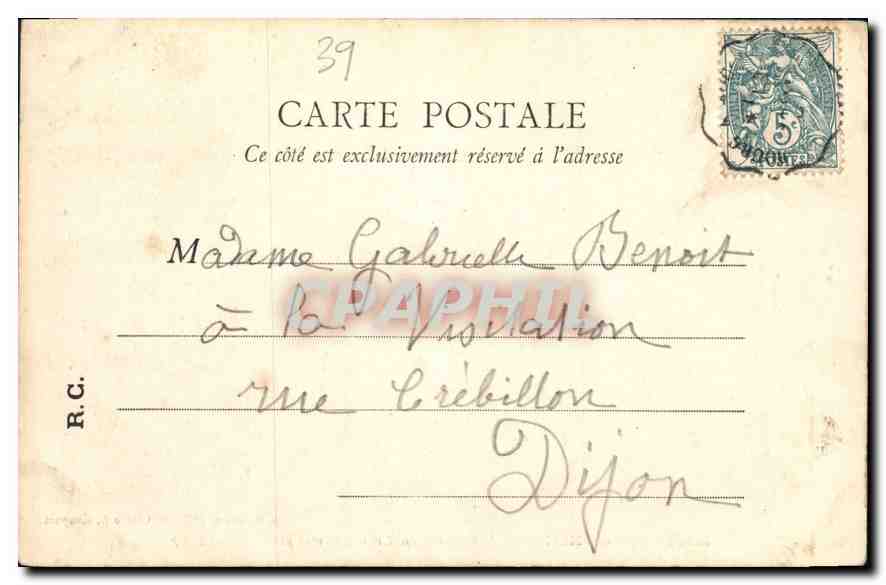 39
CARTE POSTALE
Ce côté est exclusivement réservé à l'adresse
5c
Madame Gabrielle Benoit
CPAPHIL
à la Visitation
R.C.
rue Crébillon
Dijon